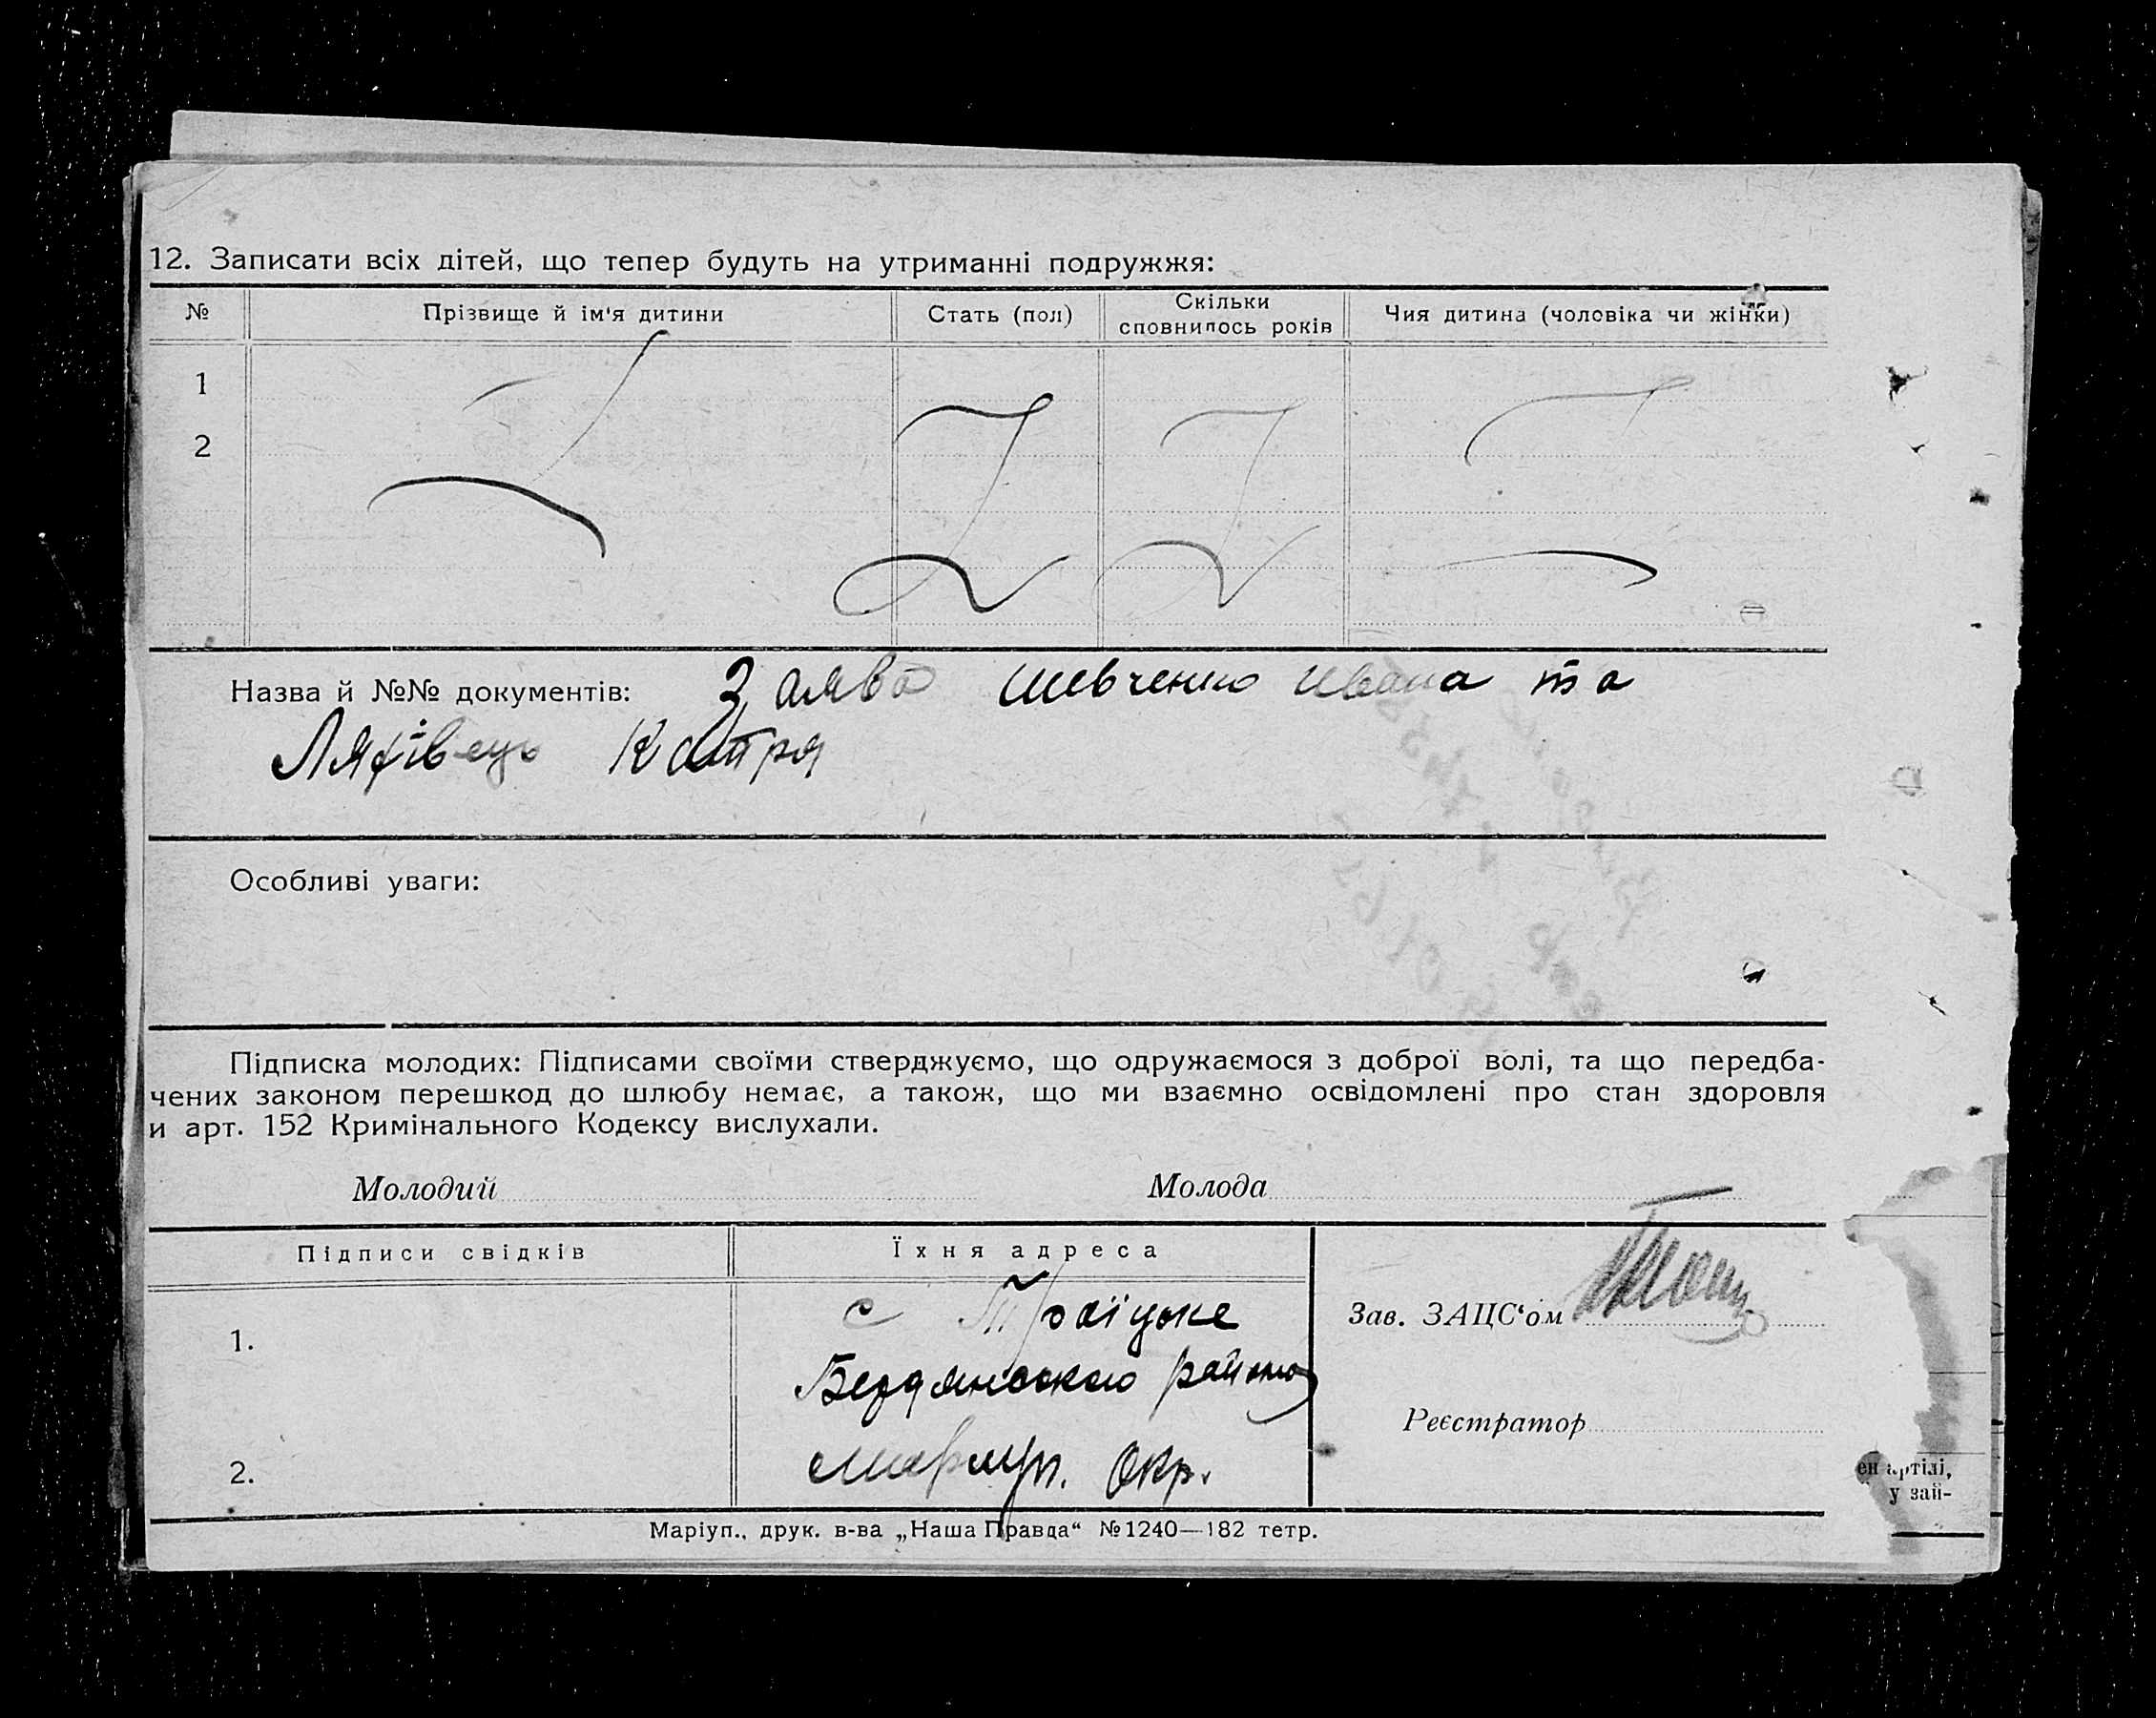 12. Записати всіх дітей, що тепер будуть на утриманні подружжя:
№ Прізвище й ім'я дитини Стать (пол) Скільки сповнилось років Чия дитина (чоловіка чи жінки)
1
2
Назва й №№ документів: Заява Шевченко Ивана та
Ляхівець Катря
Особливі уваги:
Підписка молодих: Підписами своїми стверджуємо, що одружаємося з доброї волі, та що передба-
чених законом перешкод до шлюбу немає, а також, що ми взаємно освідомлені про стан здоровля
и арт. 152 Кримінального Кодексу вислухали.
Молодий Молода
Підписи свідків Їхня адреса
1. с Троїцьке
Бердянського району
2. Маріуп. Окр.
Зав. ЗАЦС'ом
Реєстратор
ен артілі,
у зай-
Маріуп., друк. в-ва „Наша Правда" №1240—182 тетр.